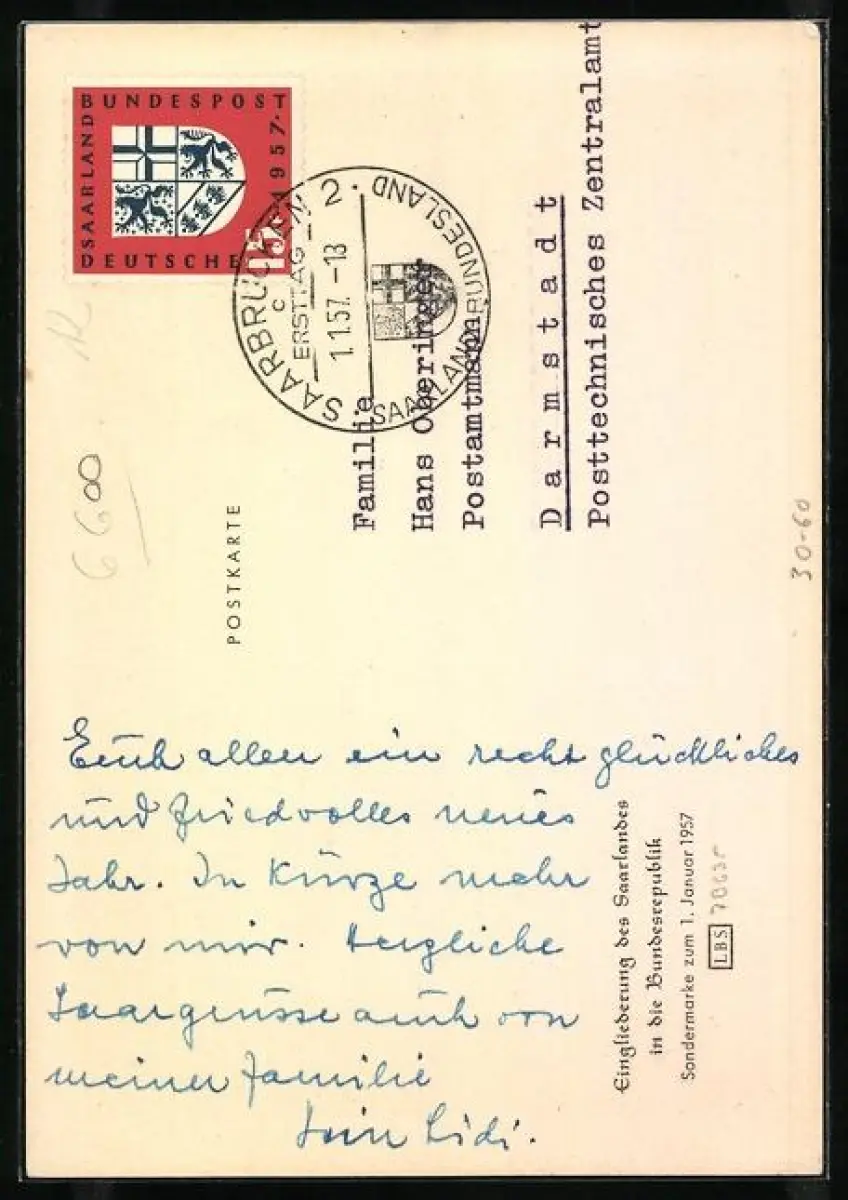 BUNDESPOST
SAARLAND
1957
DEUTSCHE
15
SAARBRÜCKEN 2
SAARLAND BUNDESLAND
C
ERSTTAG
1.1.57.-13
POSTKARTE
Familie
Hans Oberinger
Postamtmann
Darmstadt
Posttechnisches Zentralamt
6600
30-60
Euch allen ein recht glückliches
und friedvolles neues
Jahr. In Kürze mehr
von mir. Herzliche
Saargrüsse auch von
meiner Familie
Eingliederung des Saarlandes
in die Bundesrepublik
Sondermarke zum 1. Januar 1957
LBS